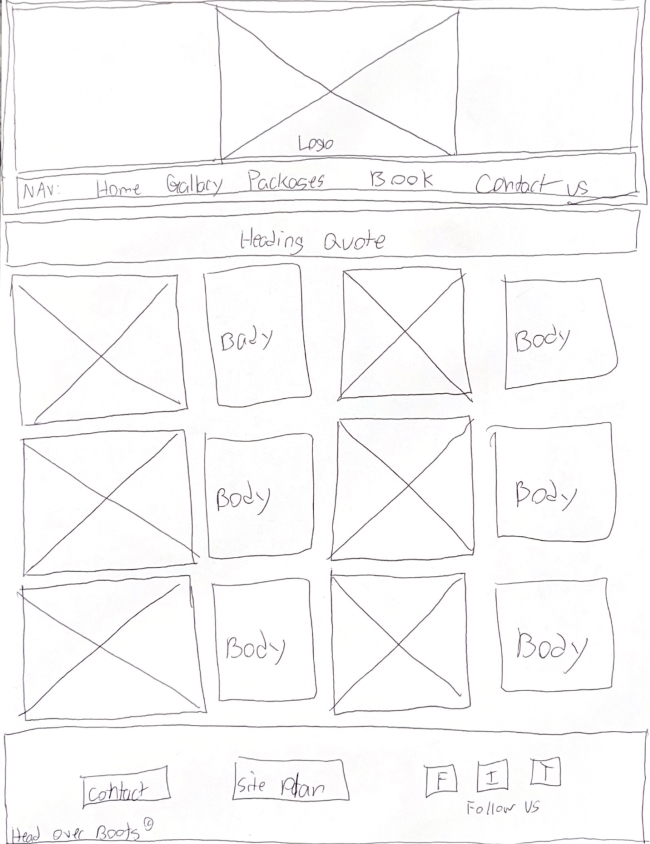 Logo
NAV: Home Gallary Packages Book Contact us
Heading Quote
Body Body
Body Body
Body Body
Contact Site Plan F I T
Follow US
Head over Boots©